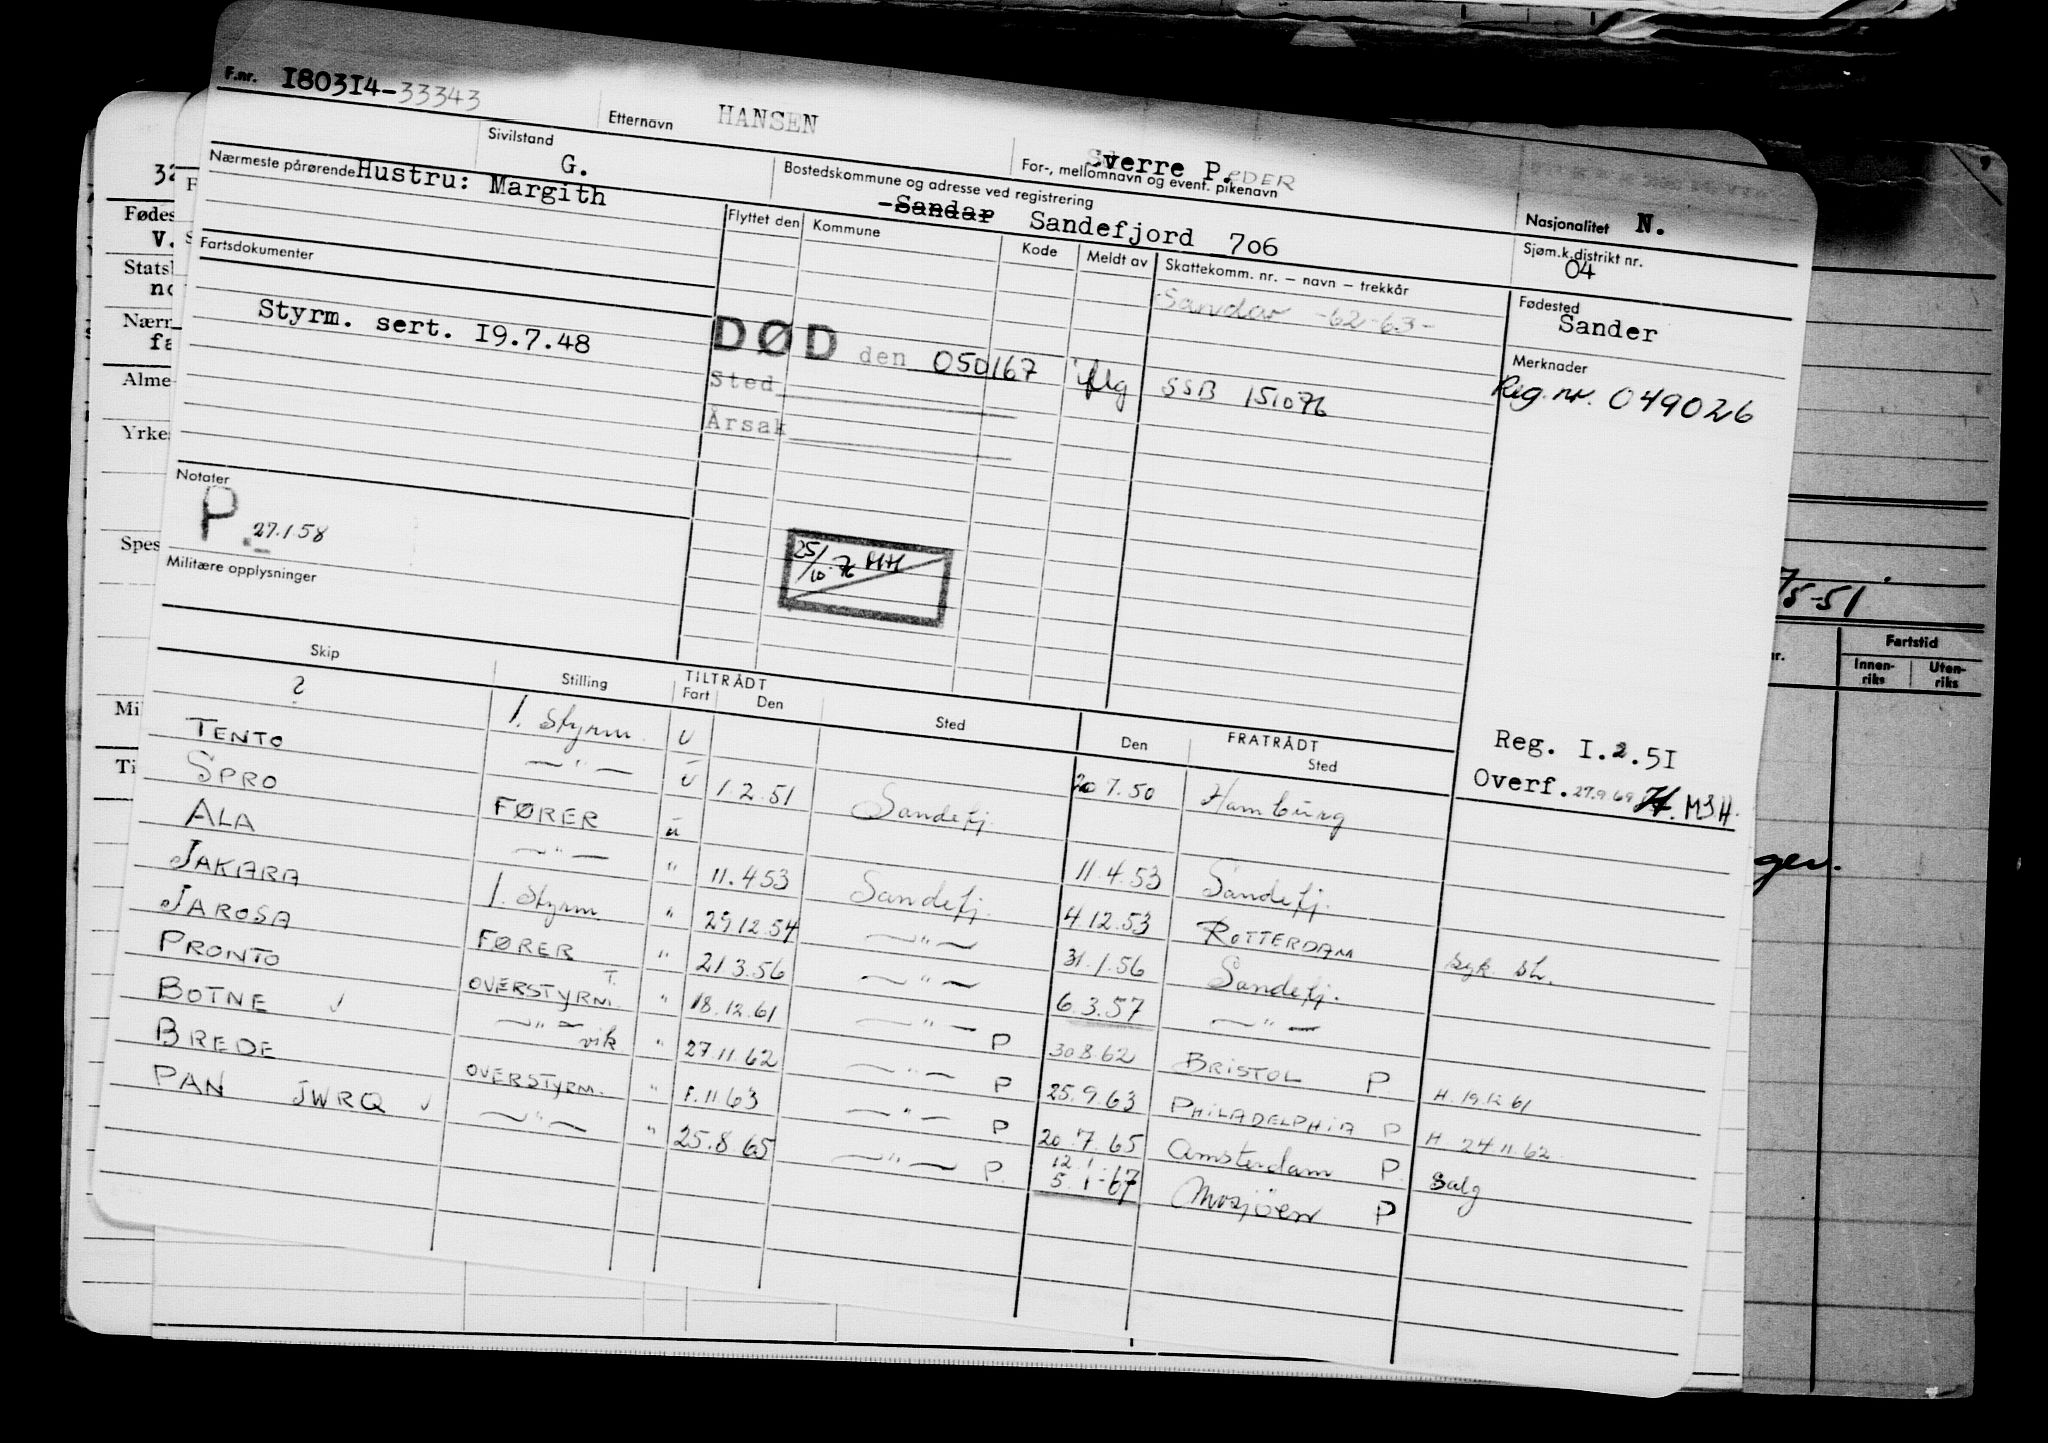 F.nr. 180314-33343
Etternavn HANSEN
For-, mellomnavn og event. pikenavn Sverre P.EDER
Sivilstand G.
Bostedskommune og adresse ved registrering
Sandar Sandefjord 706
Nasjonalitet N.
Sjøm.k.distrikt nr. 04
Nærmeste pårørende Hustru: Margith
Flyttet den Kommune Kode Meldt av Skattekomm. nr. – navn – trekkår
Sandar -62-63-
Fødested
Sander
Fartsdokumenter
Styrm. sert. I9.7.48
DØD den 050167 SSB 151076
Sted
Årsak
Merknader
Reg. nr. 049026
Notater
P. 27.1.58
25/10-76 MH
Militære opplysninger
Reg. I.2.5I
Overf. 27.9.69 M.S.H.
Skip Stilling TILTRÅDT Fart Den Sted FRATRÅDT Den Sted
? 1. Styrm. U 20 7.50 Hamburg
TENTO —"— U 1.2.51 Sandefj.
SPRO FØRER u 11.4.53 Sandefj.
ALA —"— " 11.453 Sandefj. 4.12.53 ROTTERDAM syk. sh.
JAKARA 1. Styrm " 29.12.54 —"— 31.1.56 Sandefj.
JAROSA FØRER " 21 3.56 —"— 6.3.57 —"—
PRONTO OVERSTYRM. T. " 18.12.61 —"— P 30 8 62 BRISTOL P. H. 19.12 61
BOTNE —"— vik " 27.11.62 —"— P 25.9.63 PHILADELPHIA P H 24.11.62.
BREDE OVERSTYRM. " F.11 63 —"— P 20.7.65 Amsterdam P. Salg
PAN JWRQ —"— " 25.8 65 —"— P. 12.1 5.1-67 Mosjøen P
32
F
Fødes
V.
Stats
Nærm
fa
Alme
Yrke
Spes
Mil
Ti
75-51
Fartstid
Innen-
riks
Uten-
riks
nr.
ger.